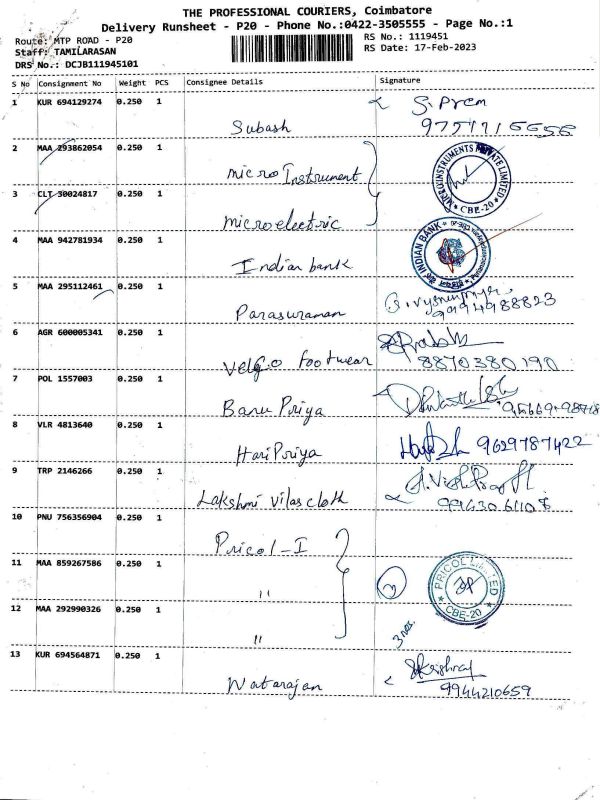 THE PROFESSIONAL COURIERS, Coimbatore
Delivery Runsheet - P20 - Phone No.:0422-3505555 - Page No.:1
Route: MTP ROAD - P20
RS No.: 1119451
Staff: TAMILARASAN
RS Date: 17-Feb-2023
DRS No.: DCJB111945101
S No Consignment No Weight PCS Consignee Details Signature
1 KUR 694129274 0.250 1 Subash S. Prem
2 MAA 293862054 0.250 1 micro Instrument MICROINSTRUMENTS PRIVATE LIMITED * CBE-20 *
3 CLT 30024817 0.250 1 microelectric
4 MAA 942781934 0.250 1 Indian bank INDIAN BANK
5 MAA 295112461 0.250 1 Parasuraman
6 AGR 600005341 0.250 1 VelGo footwear 8870380190
7 POL 1557003 0.250 1 Banu Priya
8 VLR 4813640 0.250 1 Hari Priya 9629787422
9 TRP 2146266 0.250 1 Lakshmi Vilas cloth
10 PNU 756356904 0.250 1 Pricol - I
11 MAA 859267586 0.250 1 " 3 PRICOL Limited * CBE-20 *
12 MAA 292990326 0.250 1 " 3 nos.
13 KUR 694564871 0.250 1 Natarajan
9944210659